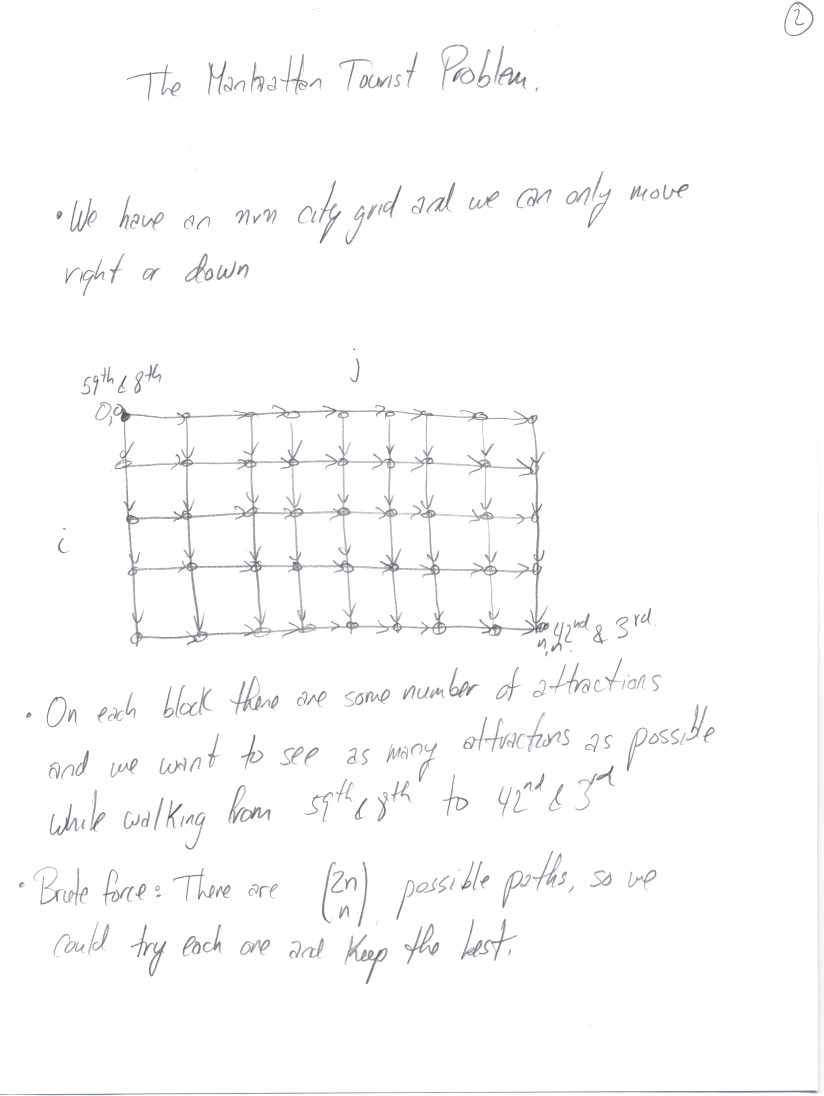 2
The Manhattan Tourist Problem.
• We have an nxn city grid and we can only move
right or down
j
59th & 8th
0,0
i
42nd & 3rd
n,n
• On each block there are some number of attractions
and we want to see as many attractions as possible
while walking from 59th & 8th to 42nd & 3rd
• Brute force: There are (2n
n) possible paths, so we
could try each one and keep the best.